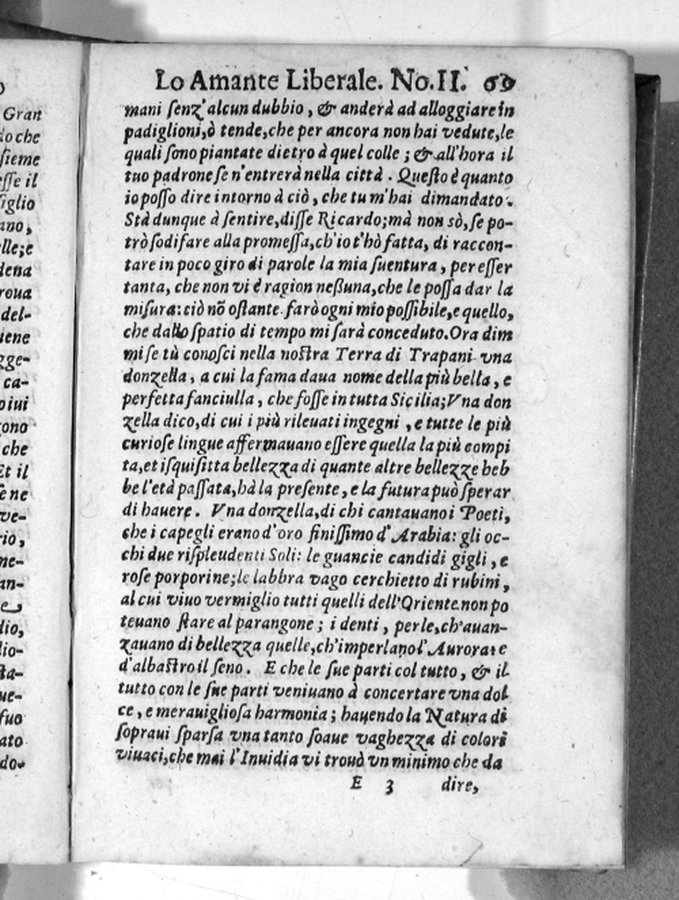 Lo Amante Liberale. No. II. 69
mani ſenz'alcun dubbio, & anderà ad alloggiare in
padiglioni, ò tende, che per ancora non hai vedute, le
quali ſono piantate dietro à quel colle; & all'hora il
tuo padrone ſe n'entrerà nella città. Queſto è quanto
io poſſo dire intorno à ciò, che tu m'hai dimandato.
Stà dunque à ſentire, diſſe Ricardo; mà non sò, ſe po-
trò ſodifare alla promeſſa, ch'io t'hò fatta, di raccon-
tare in poco giro di parole la mia ſuentura, per eſſer
tanta, che non vi è ragion neßuna, che le poſſa dar la
miſura: ciò nõ oſtante farò ogni mio poſſibile, e quello,
che dallo ſpatio di tempo mi ſarà conceduto. Ora dim
mi ſe tù conoſci nella noſtra Terra di Trapani vna
donzella, a cui la fama daua nome della più bella, e
perfetta fanciulla, che foſſe in tutta Sicilia; Vna don
zella dico, di cui i più rileuati ingegni, e tutte le più
curioſe lingue affermauano eſſere quella la più compi
ta, et iſquiſitta bellezza di quante altre bellezze heb
be l'età paſſata, hà la preſente, e la futura può ſperar
di hauere. Vna donzella, di chi cantauano i Poeti,
che i capegli erano d'oro finiſſimo d'Arabia: gli oc-
chi due riſpleudenti Soli: le guancie candidi gigli, e
roſe porporine; le labbra vago cerchietto di rubini,
al cui viuo vermiglio tutti quelli dell'Oriente non po
teuano ſtare al parangone; i denti, perle, ch'auan-
zauano di bellezza quelle, ch'imperla l'Aurora: e
d'albaſtro il ſeno. E che le ſue parti col tutto, & il
tutto con le ſue parti veniuano à concertare vna dol
ce, e merauiglioſa harmonia; hauendo la Natura di
ſopraui ſparſa vna tanto ſoaue vaghezza di colori
viuaci, che mai l'Inuidia vi trouò vn minimo che da
E 3 dire,
Gran
lo che
ſieme
eſſe il
ſiglio
ano,
lle; e
dena
roua
del-
iene
gge-
ca-
o iui
gono
che
Et il
ſe ne
ve-
rio,
ne-
an-
e
dio,
lio-
ſta-
ue-
ſuo
ato
do-